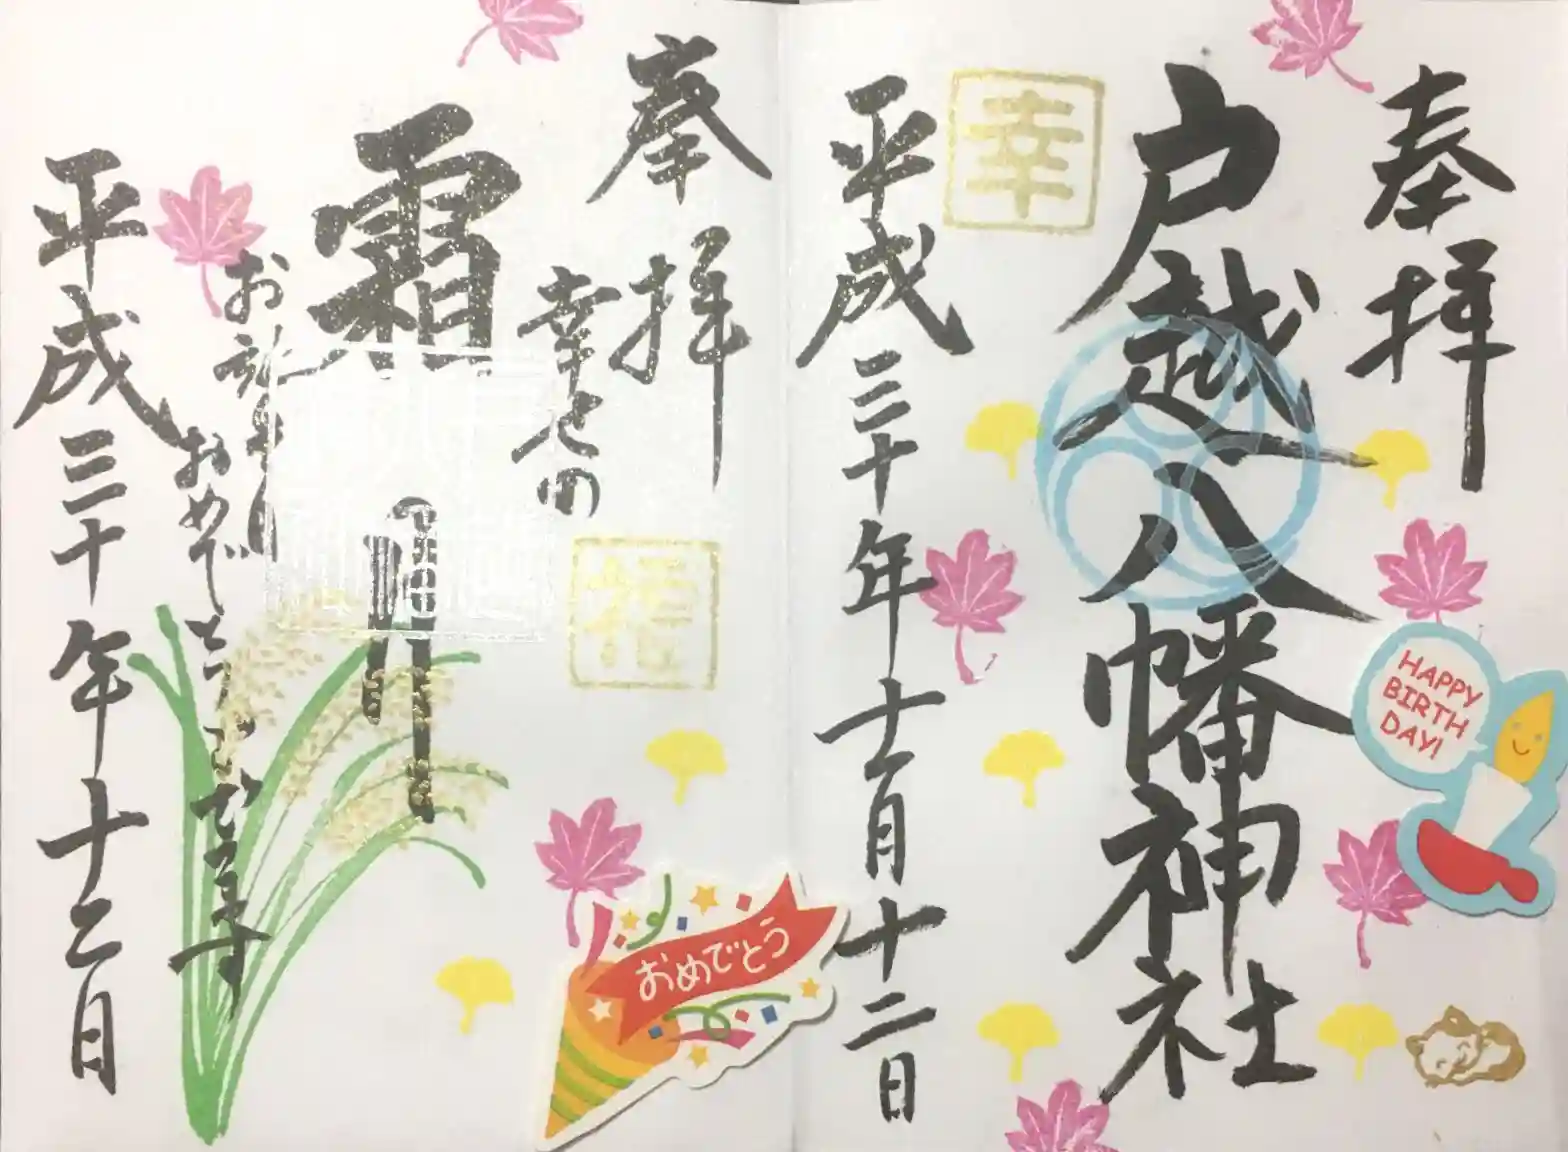 奉拝
戸越八幡神社
幸
平成三十年十一月十二日
HAPPY
BIRTH
DAY!
奉拝
幸せの
福
霜
おめでとうございます
平成三十年十二日
おめでとう